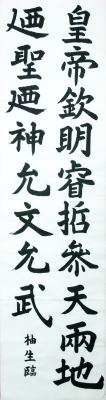 皇帝欽明睿哲參天兩地
廼聖廼神允文允武
柚生臨